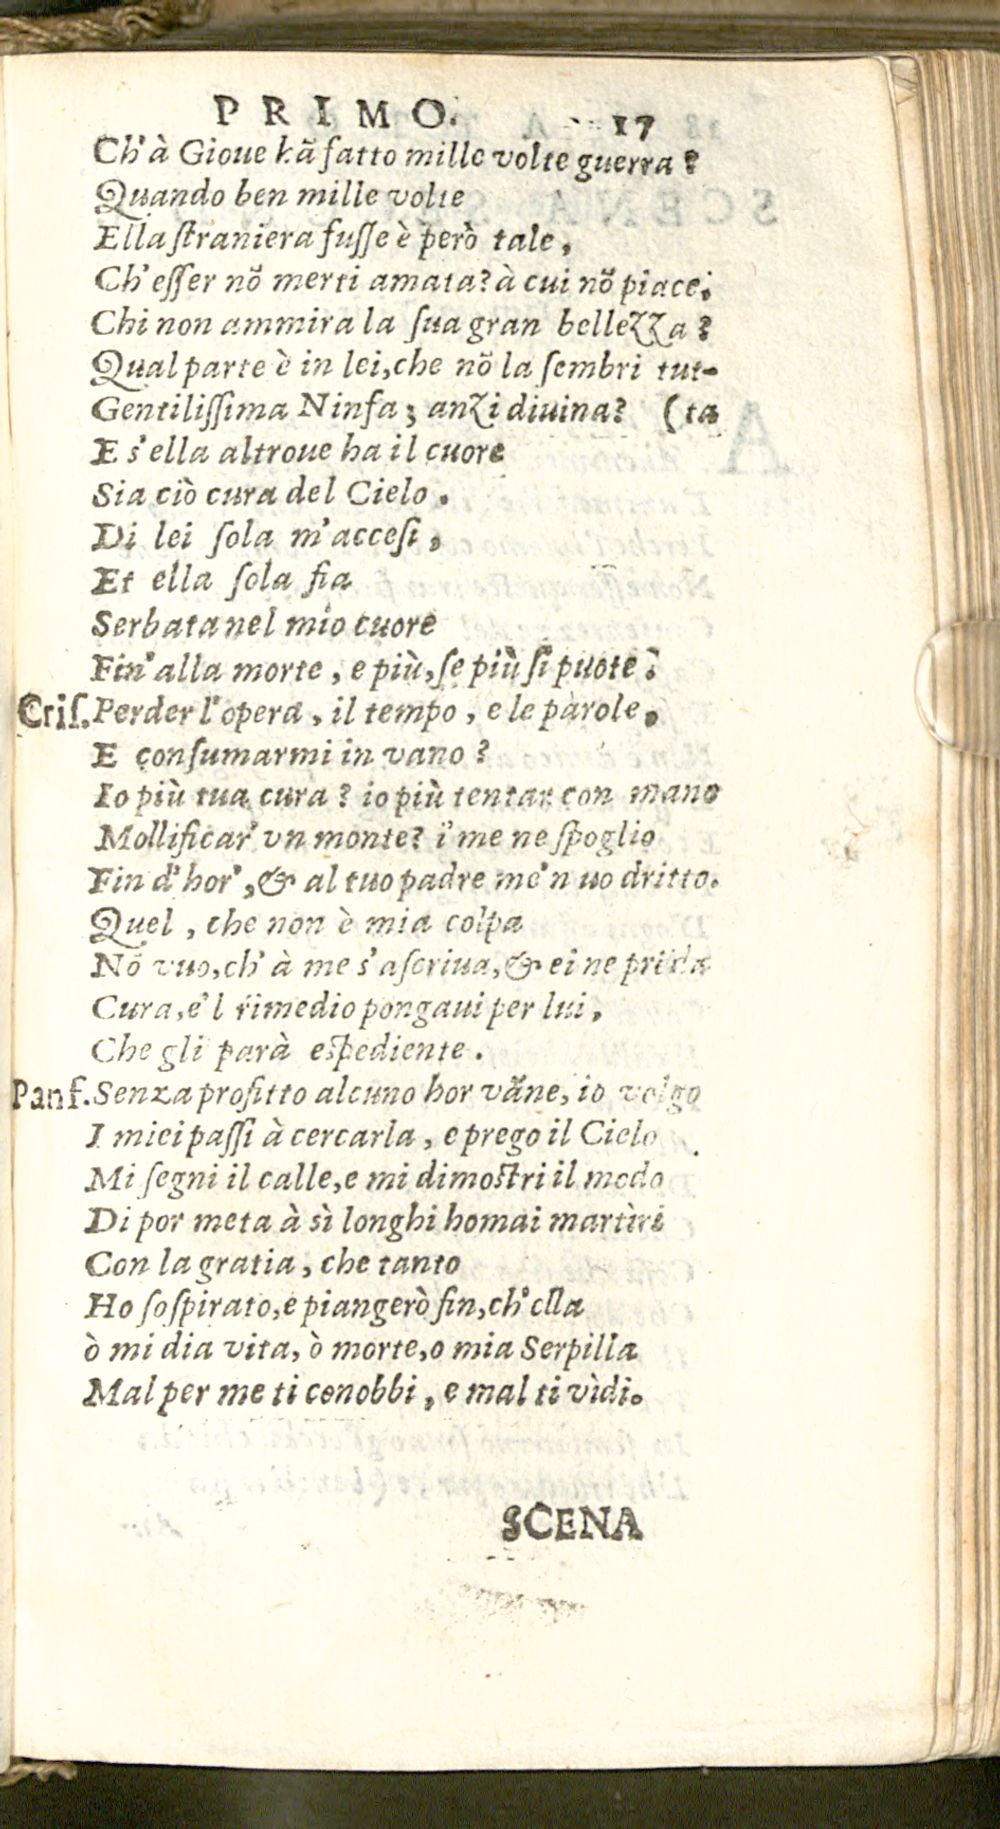 PRIMO. 17
Ch'à Gioue hã fatto mille volte guerra?
Quando ben mille volte
Ella straniera fusse è però tale,
Ch'esser nõ merti amata? à cui nõ piace;
Chi non ammira la sua gran bellezza?
Qual parte è in lei, che nõ la sembri tut-
Gentilissima Ninfa; anzi diuina? (ta
E s'ella altroue ha il cuore
Sia ciò cura del Cielo.
Di lei sola m'accesi,
Et ella sola fia
Serbata nel mio cuore
Fin'alla morte, e più, se più si puote?
Cris. Perder l'opera, il tempo, e le parole,
E consumarmi in vano?
Io più tua cura? io più tentar con mano
Mollificar' vn monte? i' me ne spoglio
Fin d'hor', & al tuo padre me'n uo dritto.
Quel, che non è mia colpa
Nõ vuo, ch'à me s'ascriua, & ei ne prẽda
Cura, e'l rimedio pongaui per lui,
Che gli parà espediente.
Panf. Senza profitto alcuno hor vãne, io volgo
I miei passi à cercarla, e prego il Cielo
Mi segni il calle, e mi dimostri il modo
Di por meta à sì longhi homai martìri
Con la gratia, che tanto
Ho sospirato, e piangerò fin, ch'ella
ò mi dia vita, ò morte, o mia Serpilla
Mal per me ti conobbi, e mal ti vìdi.
SCENA